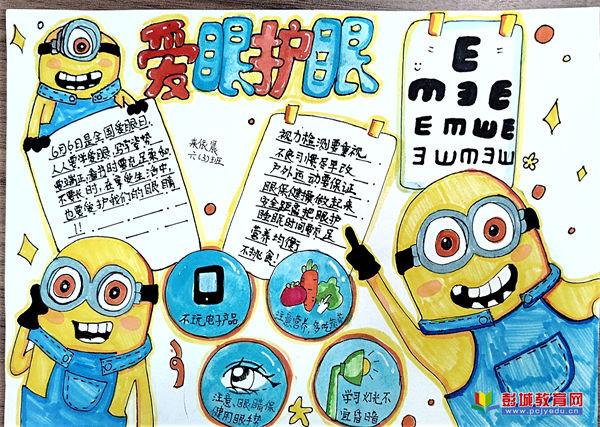 爱眼护眼
6月6日是全国爱眼日,
人人要学爱眼,写字姿势
要端正,
时,在享受生活中,
也要爱护我们的眼睛
!!
六(3)班
视力检测要重视
不良习惯尽早改
户外运动要保证
眼保健操做起来
安全距离把眼护
睡眠时间要足
营养均衡
不挑食!
E
E M 3 E
E M W E
3 W M 3 W
不玩电子产品
注意营养,多吃蔬菜
注意、眼睛保
使用眼卡势
学习灯光不
宜昏暗
彭城教育网
www.pcjyedu.com